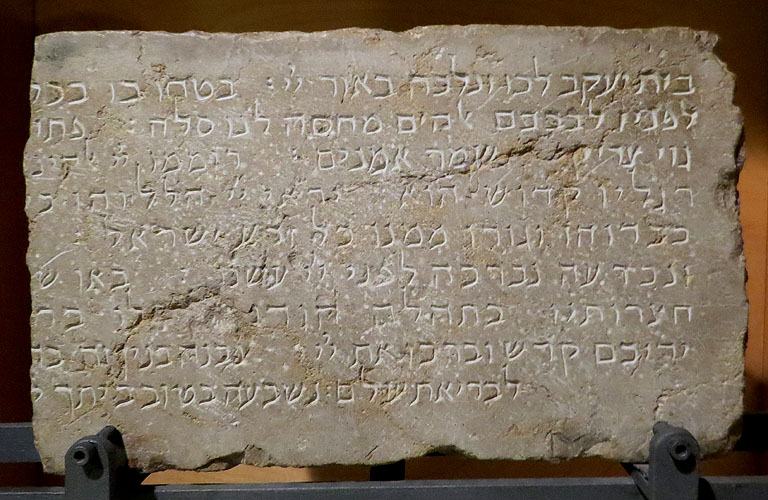 בית יעקב לכו ונלכה באור יי : בטחו בו בכל
לפניו לבבכם אלהים מחסה לנו סלה : פתח
גוי צדיק שמר אמנים : רוממו יי
רגליו קדוש הוא יראי יי הללוהו כ
כבדוהו וגורו ממנו כל זרע ישראל
ונכרעה נברכה לפני יי עשנו : באו ש
חצרותיו בתהלה הודו לו בר
ידיכם קדש וברכו את יי
לבריאת עולם : נשבעה בטוב ביתך ק